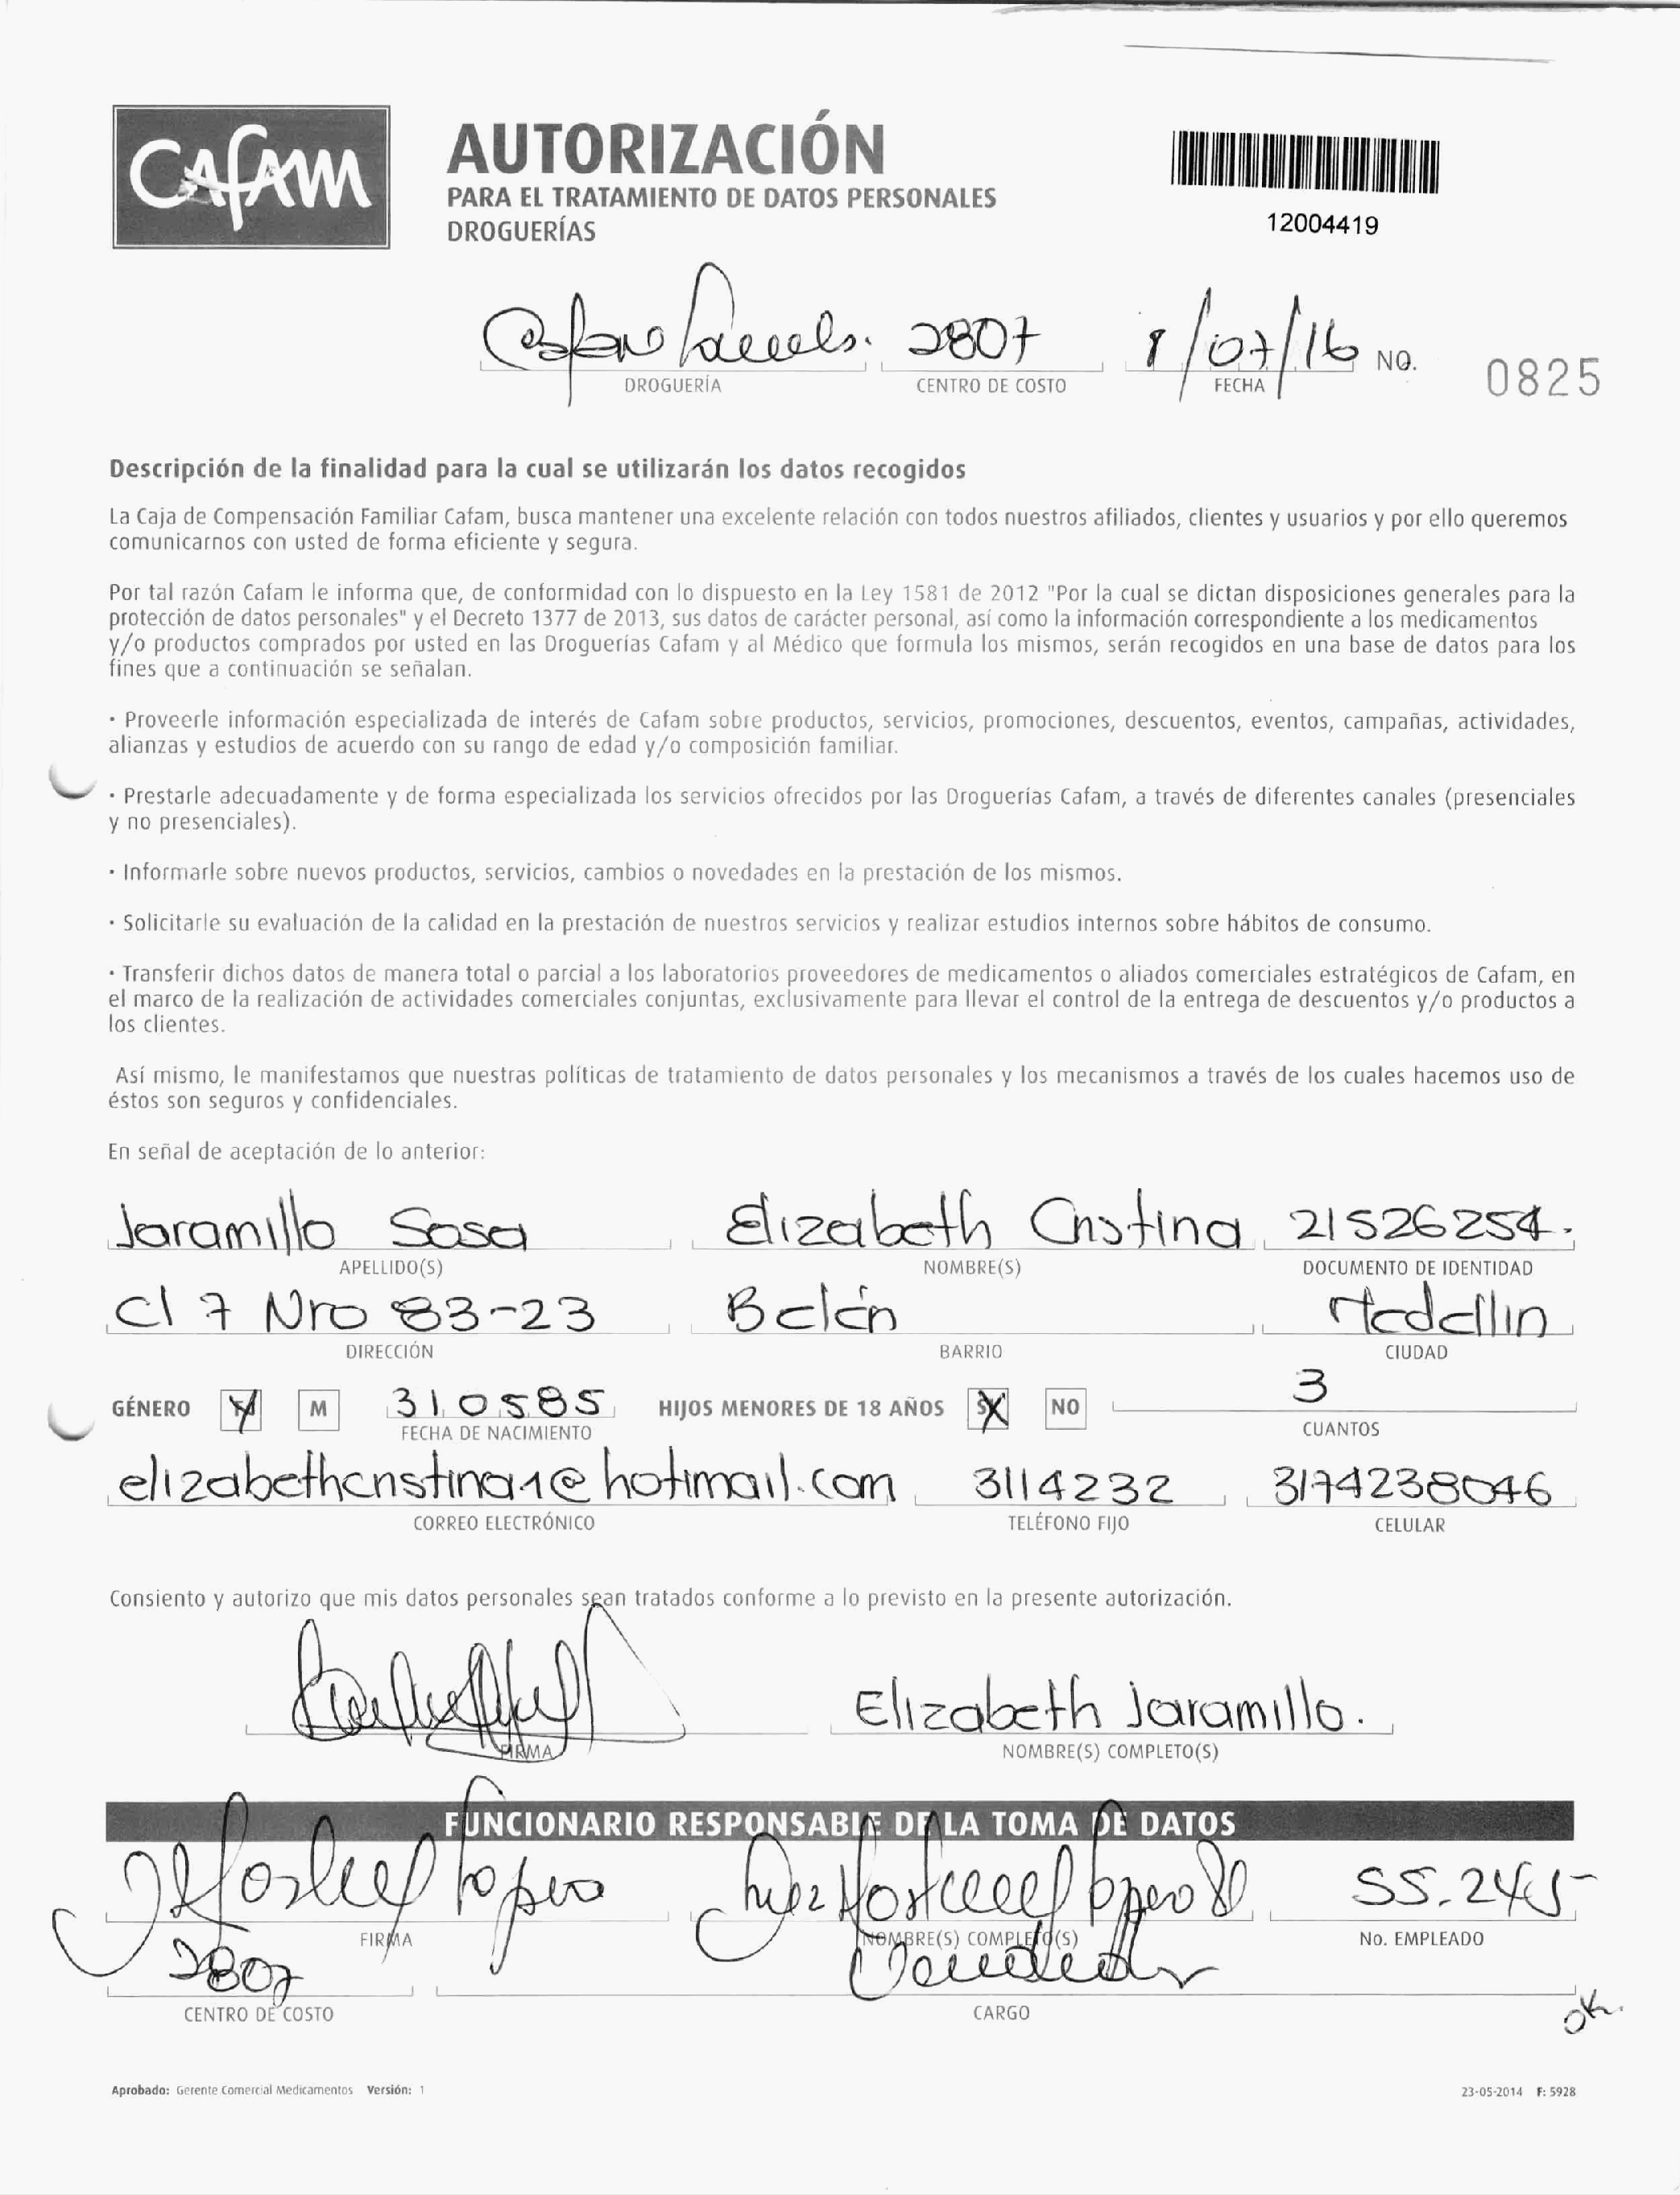 CAFAM
AUTORIZACIÓN
PARA EL TRATAMIENTO DE DATOS PERSONALES
DROGUERÍAS
12004419
2807 1/07/16 NO. 0825
DROGUERÍA CENTRO DE COSTO FECHA
Descripción de la finalidad para la cual se utilizarán los datos recogidos
La Caja de Compensación Familiar Cafam, busca mantener una excelente relación con todos nuestros afiliados, clientes y usuarios y por ello queremos
comunicarnos con usted de forma eficiente y segura.
Por tal razón Cafam le informa que, de conformidad con lo dispuesto en la Ley 1581 de 2012 "Por la cual se dictan disposiciones generales para la
protección de datos personales" y el Decreto 1377 de 2013, sus datos de carácter personal, así como la información correspondiente a los medicamentos
y/o productos comprados por usted en las Droguerías Cafam y al Médico que formula los mismos, serán recogidos en una base de datos para los
fines que a continuación se señalan.
· Proveerle información especializada de interés de Cafam sobre productos, servicios, promociones, descuentos, eventos, campañas, actividades,
alianzas y estudios de acuerdo con su rango de edad y/o composición familiar.
· Prestarle adecuadamente y de forma especializada los servicios ofrecidos por las Droguerías Cafam, a través de diferentes canales (presenciales
y no presenciales).
· Informarle sobre nuevos productos, servicios, cambios o novedades en la prestación de los mismos.
· Solicitarle su evaluación de la calidad en la prestación de nuestros servicios y realizar estudios internos sobre hábitos de consumo.
· Transferir dichos datos de manera total o parcial a los laboratorios proveedores de medicamentos o aliados comerciales estratégicos de Cafam, en
el marco de la realización de actividades comerciales conjuntas, exclusivamente para llevar el control de la entrega de descuentos y/o productos a
los clientes.
Así mismo, le manifestamos que nuestras políticas de tratamiento de datos personales y los mecanismos a través de los cuales hacemos uso de
éstos son seguros y confidenciales.
En señal de aceptación de lo anterior:
Jaramillo Sosa Elizabeth Cristina 21526254.
APELLIDO(S) NOMBRE(S) DOCUMENTO DE IDENTIDAD
Cl 7 Nro 83-23 Belén Medellin
DIRECCIÓN BARRIO CIUDAD
GÉNERO X M 310585 HIJOS MENORES DE 18 AÑOS X NO 3
FECHA DE NACIMIENTO CUANTOS
elizabethcristina1@hotmail.com 3114232 3174238046
CORREO ELECTRÓNICO TELÉFONO FIJO CELULAR
Consiento y autorizo que mis datos personales sean tratados conforme a lo previsto en la presente autorización.
Elizabeth Jaramillo.
FIRMA NOMBRE(S) COMPLETO(S)
FUNCIONARIO RESPONSABLE DE LA TOMA DE DATOS
55.245
FIRMA NOMBRE(S) COMPLETO(S) No. EMPLEADO
2807
CENTRO DE COSTO CARGO
ok.
Aprobado: Gerente Comercial Medicamentos Versión: 1 23-05-2014 F: 5928